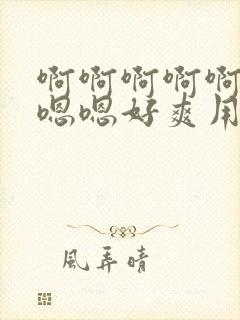 啊啊啊啊啊
嗯嗯好爽用
風弄晴